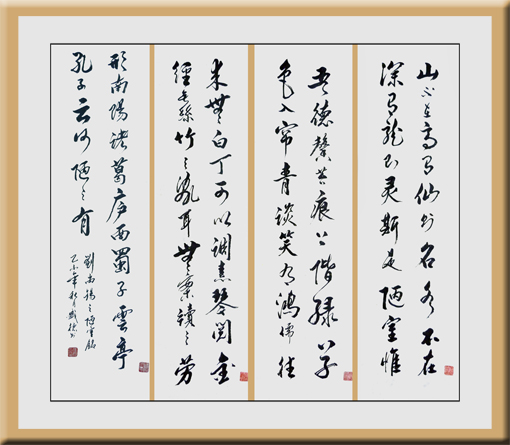 山不在高有仙则名水不在
深有龙则灵斯是陋室惟
吾德馨苔痕上阶绿草
色入帘青谈笑有鸿儒往
来無白丁可以调素琴阅金
經無絲竹之亂耳無案牘之劳
形南陽诸葛庐西蜀子雲亭
孔子云何陋之有
劉禹錫之陋室銘
乙未年秋月